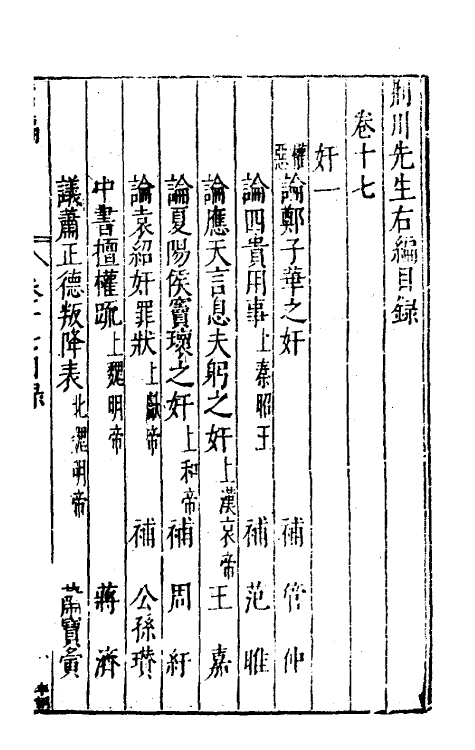 荆川先生右編目錄
卷十七
奸一
權惡 論鄭子華之奸 補 管仲
論四貴用事 上秦昭王 補 范睢
論應天言息夫躬之奸 上漢哀帝 王嘉
論夏陽侯竇瓌之奸 上和帝 補 周紆
論袁紹奸罪狀 上獻帝 補 公孫瓚
中書擅權疏 上魏明帝 蔣濟
議蕭正德叛降表 北魏明帝 蕭寶夤
卷十七目錄